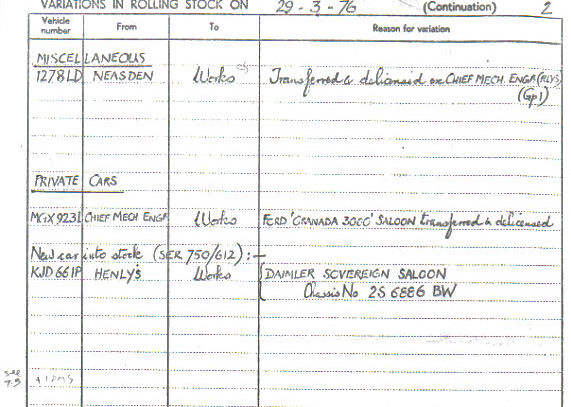 VARIATIONS IN ROLLING STOCK ON 29-3-76 (Continuation) 2
Vehicle number From To Reason for variation
MISCELLANEOUS
1278LD NEASDEN Works Transferred & delicensed ex CHIEF MECH. ENGR (RLYS)
(Gp1)
PRIVATE CARS
MGX 923L CHIEF MECH ENGR Works FORD 'GRANADA 3000' SALOON transferred & delicensed
New car into stock (SER 750/612):-
KJD 661P HENLY'S Works DAIMLER SOVEREIGN SALOON
Chassis No 2S 6886 BW